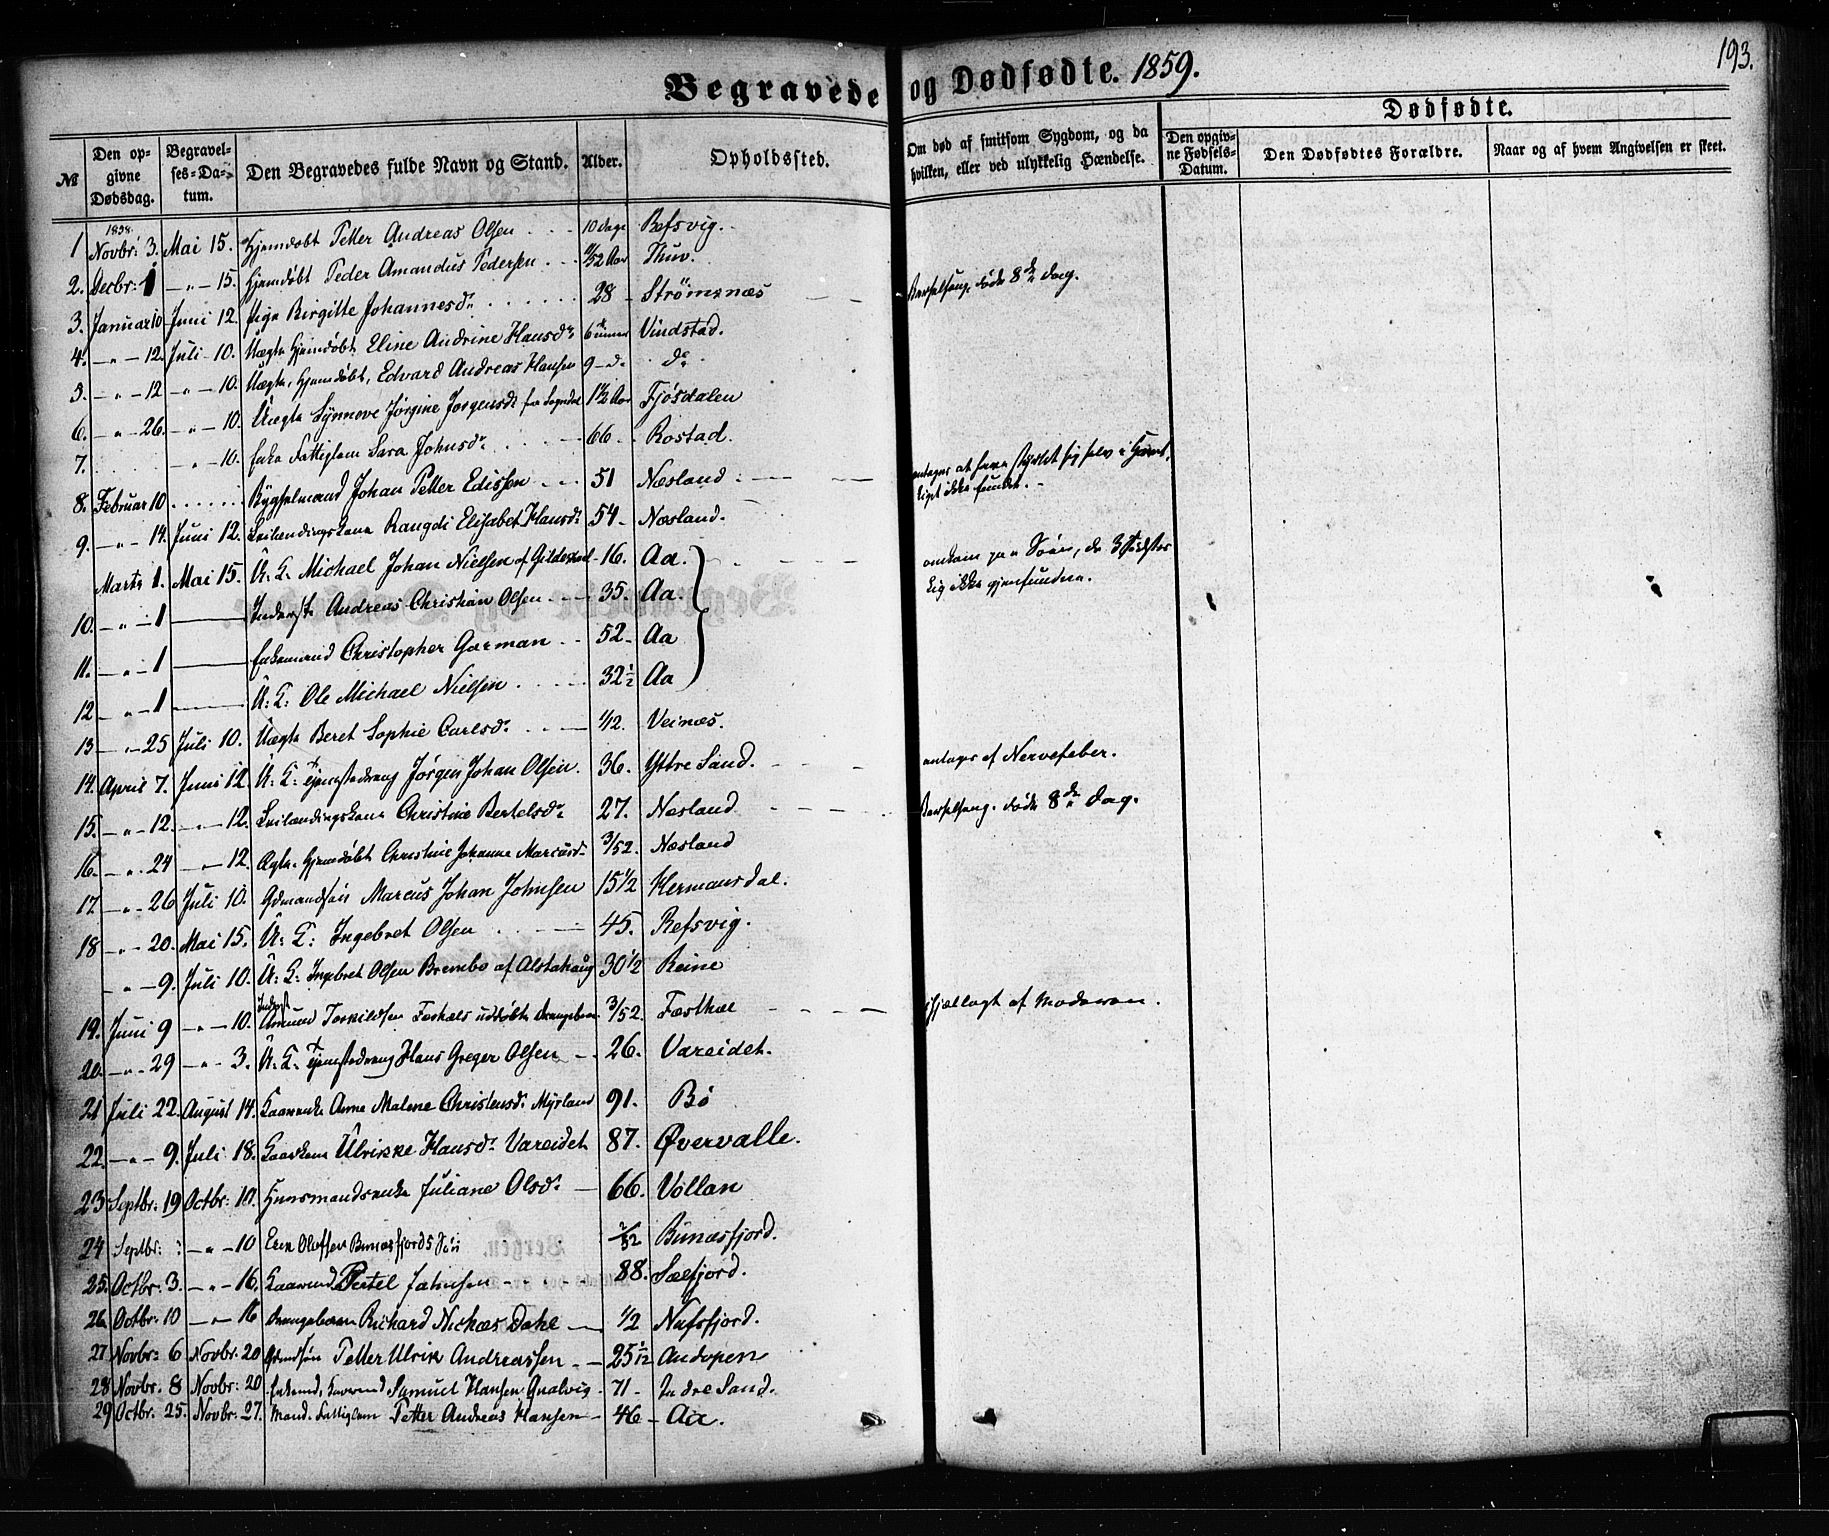 193.
Begravede og Dødfødte. 1859.
№
Den opgivne Dødsdag.
Begravelses-Datum.
Den Begravedes fulde Navn og Stand.
Alder.
Opholdssted.
Om død af smitsom Sygdom, og da hvilken, eller ved ulykkelig Hændelse.
Dødfødte.
Den opgivne Fødsels-Datum.
Den Dødfødtes Forældre.
Naar og af hvem Angivelsen er skeet.
1858.
1 Novbr: 3. Mai 15. Hjemdøbt Petter Andreas Olsen 10 dage Refsvig.
2. Decbr: 1 — " — 15. Hjemdøbt Peder Amandus Pedersen /52 Aar Thuv.
3. Januar 10 Juni 12. Pige Birgitte Johannesdr 28 Strømsnæs Barselseng. døde 8de Dag.
4. — " — 12. Juli 10. Uægte Hjemdøbt Eline Andrine Hansdr 6 Vindstad.
5. — " — 12 — " — 10. Uægte, Hjemdøbt, Edvard Andreas Hansen 9 — d. do
6. — " — 26. — " — 10. Uægte Synnove Jørgine Jørgensdr fra Sogndal 1½ Aar Fjøsdalen
7. — " — 10. Enke Fattiglem Sara Johnsdr 66. Rostad.
8. Februar 10 Bygselmand Johan Petter Edissen 51 Næsland antages at have styrtet sig selv i Havet, Liget ikke fundet.
9. — " — 14. Juni 12. Leilændingskone Rangdi Elisabet Hansdr 54 Næsland.
Marts 1. Mai 15. U: K: Michael Johan Nielsen af Gildeskaal 16. Aa. omkom paa Søen, de 3 sidstes Lig ikke gjenfundne.
10. — " — 1 Inderst Andreas Christian Olsen 35. Aa.
11. — " — 1 Enkemand Christopher Garman 52. Aa
12 — " — 1 U: K: Ole Michael Nielsen 32½ Aa
13 — " — 25 Juli 10. Uægte Beret Sophie Carlsdr 1/12. Veinæs.
14. April 7. Juni 12. U: K: Tjenestedreng Jørgen Johan Olsen. 36. Yttre Sand. antages af Nervefeber.
15. — " — 12. — " — 12. Leilændingskone Christine Bertelsdr 27. Næsland Barselseng. døde 8de Dag.
16. — " — 24 — " — 12. Ægte. Hjemdøbt Christine Johanne Marcusdr 3/52. Næsland
17. — " — 26 Juli 10. Gdmandssøn Marcus Johan Johnsen 15½ Hermansdal.
18 — " — 20. Mai 15. U: K: Ingebret Olsen 45. Refsvig.
— " — 9. Juli 10. U: K: Ingebret Olsen Brembo af Alstahaug 30½ Reine
19. Juni 9 — " — 10. Inderst Amund Torkildsen Festhæls udøbte Drengebarn 3/52. Festhæl ihjellagt af Moderen.
20. — " — 29 — " — 3. U: K: Tjenestedreng Hans Greger Olsen 26. Vareidet.
21 Juli 22. August 14. Kaarenke Anne Malene Christensdr Myrland 91. Bø
22. — " — 9. Juli 18. Kaarkone Ulrikke Hansdr Vareidet 87. Øvervalle.
23 Septbr: 19 Octbr: 10. Huusmandsenke Juliane Olsdr 66. Vollan
24 Septbr: — " — 10 Erik Olofsen Bunæsfjords Søn 2/52 Bunæsfjord.
25. Octbr: 3. — " — 16. Kaarmd Pertel Johnsen 88. Sælfjord.
26. Octbr: 10 — " — 16 Drengebarn Richard Nichas Dahl ½ Nufsfjord.
27 Novbr: 6 Novbr: 20 Gdmdsøn Petter Ulrik Andreassen 25 1/12 Andopen
28 Novbr. 8 Novbr: 20 Enkemd, Kaarmd Samuel Hansen Qualvig 71 Indre Sand.
29 Octbr. 25. Novbr. 27. Mand. Fattiglem Petter Andreas Hansen 46 Aa.